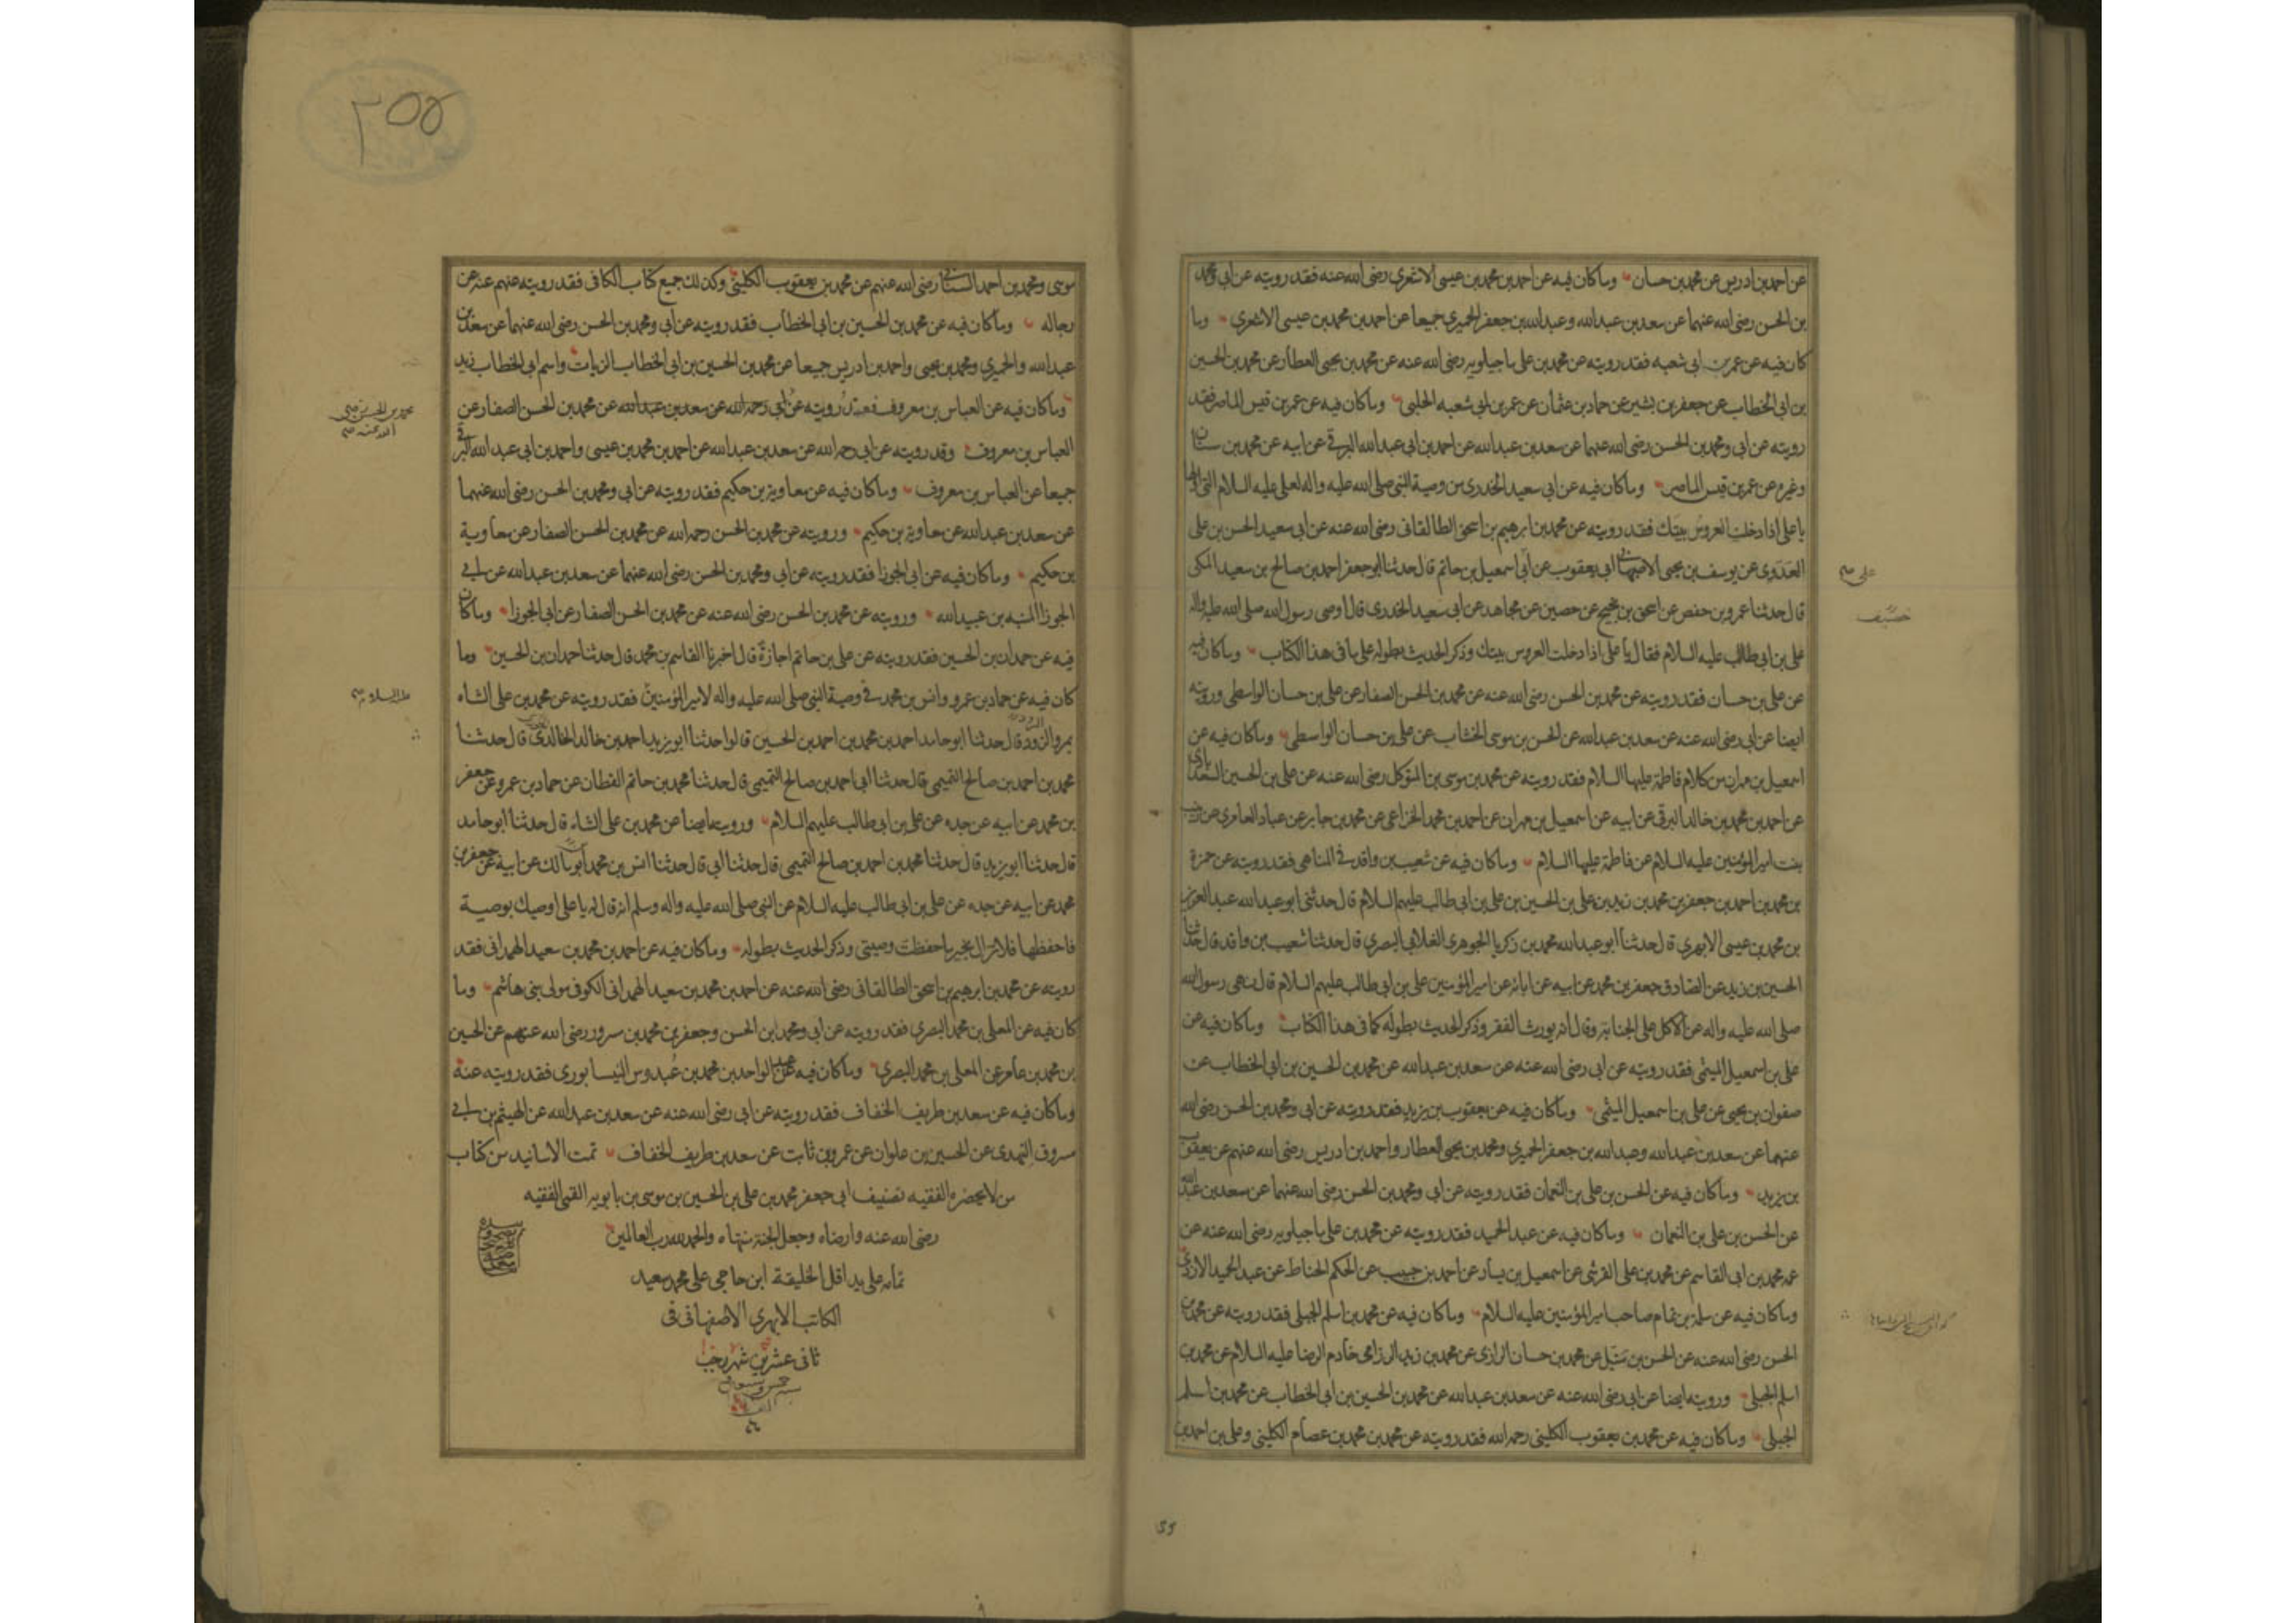 عن احمد بن ادريس عن محمد بن حسان وما كان فيه عن احمد بن محمد بن عيسى الاشعري رضى الله عنه فقد رويته عن ابي ومحمد
بن الحسن رضى الله عنهما عن سعد بن عبدالله وعبدالله بن جعفر الحميري جميعا عن احمد بن محمد بن عيسى الاشعري وما
كان فيه عن عمر بن ابي شعبه فقد رويته عن محمد بن على ماجيلويه رضى الله عنه عن محمد بن يحيى العطار عن محمد بن الحسين
بن ابي الخطاب عن جعفر بن بشير عن حماد بن عثمان عن عمر بن ابي شعبه الحلبي وما كان فيه عن عمر بن قيس الماصر فقد
رويته عن ابي ومحمد بن الحسن رضى الله عنهما عن سعد بن عبدالله عن احمد بن ابي عبدالله البرقي عن ابيه عن محمد بن سنان
وغيره عن عمر بن قيس الماصر وما كان فيه عن ابي سعيد الخدري من وصية النبي صلى الله عليه واله لعلى عليه السلام التي اولها
يا على اذا دخلت العروس بيتك فقد رويته عن محمد بن ابرهيم بن اسحق الطالقانى رضى الله عنه عن ابي سعيد الحسن بن على
العدوى عن يوسف بن يحيى الاصبهانى ابي يعقوب عن ابي اسمعيل بن حاتم قال حدثنا ابو جعفر احمد بن صالح بن سعيد المكى
على
قال حدثنا عمرو بن حفص عن اسحق بن نجيح عن حصين عن مجاهد عن ابي سعيد الخدرى قال اوصى رسول الله صلى الله عليه واله
على بن ابي طالب عليه السلام فقال يا على اذا دخلت العروس بيتك وذكر الحديث بطوله على ما فى هذا الكتاب وما كان فيه
عن على بن حسان فقد رويته عن محمد بن الحسن رضى الله عنه عن محمد بن الحسن الصفار عن على بن حسان الواسطى ورويته
ايضا عن ابي رضى الله عنه عن سعد بن عبدالله عن الحسن بن موسى الخشاب عن على بن حسان الواسطى وما كان فيه عن
اسمعيل بن مهران من كلام فاطمة عليها السلام فقد رويته عن محمد بن موسى بن المتوكل رضى الله عنه عن على بن الحسين السعدابادي
عن احمد بن محمد بن خالد البرقى عن ابيه عن اسمعيل بن مهران عن احمد بن محمد الخزاعى عن محمد بن جابر عن عباد العامرى عن زينب
بنت امير المؤمنين عليه السلام عن فاطمة عليها السلام وما كان فيه عن شعيب بن واقد فى المناهى فقد رويته عن حمزة
بن محمد بن احمد بن جعفر بن محمد بن زيد بن على بن الحسين بن على بن ابي طالب عليهم السلام قال حدثنى ابو عبدالله عبدالعزيز
بن محمد بن عيسى الابهري قال حدثنا ابو عبدالله محمد بن زكريا الجوهري الغلابي البصري قال حدثنا شعيب بن واقد قال حدثنا
الحسين بن زيد عن الصادق جعفر بن محمد عن ابيه عن ابائه عن امير المؤمنين على بن ابي طالب عليهم السلام قال نهى رسول الله
صلى الله عليه واله عن الاكل على الجنابة وقال انه يورث الفقر وذكر الحديث بطوله كما فى هذا الكتاب وما كان فيه عن
على بن اسمعيل الميثمى فقد رويته عن ابي رضى الله عنه عن سعد بن عبدالله عن محمد بن الحسين بن ابي الخطاب عن
صفوان بن يحيى عن على بن اسمعيل الميثمي وما كان فيه عن يعقوب بن يزيد فقد رويته عن ابي ومحمد بن الحسن رضى الله
عنهما عن سعد بن عبدالله وعبدالله بن جعفر الحميري ومحمد بن يحيى العطار واحمد بن ادريس رضى الله عنهم عن يعقوب
بن يزيد وما كان فيه عن الحسن بن على بن النعمان فقد رويته عن ابي ومحمد بن الحسن رضى الله عنهما عن سعد بن عبدالله
عن الحسن بن على بن النعمان وما كان فيه عن عبدالحميد فقد رويته عن محمد بن على ماجيلويه رضى الله عنه عن
عمه محمد بن ابي القاسم عن محمد بن على القرشى عن اسمعيل بن يسار عن احمد بن حبيب عن الحكم الخناط عن عبدالحميد الازدى
وما كان فيه عن سلمة بن تمام صاحب امير المؤمنين عليه السلام وما كان فيه عن محمد بن اسلم الجبلى فقد رويته عن محمد بن
الحسن رضى الله عنه عن الحسن بن متيل عن محمد بن حسان الرازى عن محمد بن زيد الرزامى خادم الرضا عليه السلام عن محمد بن
اسلم الجبلى ورويته ايضا عن ابي رضى الله عنه عن سعد بن عبدالله عن محمد بن الحسين بن ابي الخطاب عن محمد بن اسلم
الجبلى وما كان فيه عن محمد بن يعقوب الكلينى رحمه الله فقد رويته عن محمد بن محمد بن عصام الكلينى وعلى بن احمد بن
٢٥٥
موسى ومحمد بن احمد السنانى رضى الله عنهم عن محمد بن يعقوب الكلينى وكذلك جميع كتاب الكافى فقد رويته عنهم عنه عن
رجاله وما كان فيه عن محمد بن الحسين بن ابي الخطاب فقد رويته عن ابي ومحمد بن الحسن رضى الله عنهما عن سعد بن
عبدالله والحميري ومحمد بن يحيى واحمد بن ادريس جميعا عن محمد بن الحسين بن ابي الخطاب الزيات واسم ابي الخطاب زيد
وما كان فيه عن العباس بن معروف فقد رويته عن ابي رحمه الله عن سعد بن عبدالله عن محمد بن الحسن الصفار عن
العباس بن معروف وقد رويته عن ابي رحمه الله عن سعد بن عبدالله عن احمد بن محمد بن عيسى واحمد بن ابي عبدالله البرقي
جميعا عن العباس بن معروف وما كان فيه عن معاوية بن حكيم فقد رويته عن ابي ومحمد بن الحسن رضى الله عنهما
عن سعد بن عبدالله عن معاوية بن حكيم ورويته عن محمد بن الحسن رحمه الله عن محمد بن الحسن الصفار عن معاوية
بن حكيم وما كان فيه عن ابي الجوزا فقد رويته عن ابي ومحمد بن الحسن رضى الله عنهما عن سعد بن عبدالله عن ابي
الجوزا المنبه بن عبيدالله ورويته عن محمد بن الحسن رضى الله عنه عن محمد بن الحسن الصفار عن ابي الجوزا وما كان
فيه عن حمدان بن الحسين فقد رويته عن على بن حاتم اجازة قال اخبرنا القاسم بن محمد قال حدثنا حمدان بن الحسين وما
كان فيه عن حماد بن عمرو وانس بن محمد فى وصية النبي صلى الله عليه واله لامير المؤمنين فقد رويته عن محمد بن على الشاه
عليه السلام
بمرو الرود قال حدثنا ابو حامد احمد بن محمد بن احمد بن الحسين قالوا حدثنا ابو يزيد احمد بن خالد الخالدى قال حدثنا
محمد بن احمد بن صالح التميمى قال حدثنا ابي احمد بن صالح التميمى قال حدثنا محمد بن حاتم القطان عن حماد بن عمرو عن جعفر
بن محمد عن ابيه عن جده عن على بن ابي طالب عليهم السلام ورويته ايضا عن محمد بن على الشاه قال حدثنا ابو حامد
قال حدثنا ابو يزيد قال حدثنا محمد بن احمد بن صالح التميمى قال حدثنا ابي قال حدثنا انس بن محمد ابو مالك عن ابيه عن جعفر بن
محمد عن ابيه عن جده عن على بن ابي طالب عليه السلام عن النبي صلى الله عليه واله وسلم انه قال له يا على اوصيك بوصية
فاحفظها فلا تزال بخير ما حفظت وصيتى وذكر الحديث بطوله وما كان فيه عن احمد بن محمد بن سعيد الهمدانى فقد
رويته عن محمد بن ابرهيم بن اسحق الطالقانى رضى الله عنه عن احمد بن محمد بن سعيد الهمدانى الكوفى مولى بنى هاشم وما
كان فيه عن المعلى بن محمد البصري فقد رويته عن ابي ومحمد بن الحسن وجعفر بن محمد بن مسرور رضى الله عنهم عن الحسين
بن محمد بن عامر عن المعلى بن محمد البصري وما كان فيه عن عبد الواحد بن محمد بن عبدوس النيسابورى فقد رويته عنه
وما كان فيه عن سعد بن طريف الخفاف فقد رويته عن ابي رضى الله عنه عن سعد بن عبدالله عن الهيثم بن ابي
مسروق النهدى عن الحسين بن علوان عن عمرو بن ثابت عن سعد بن طريف الخفاف تمت الاسانيد من كتاب
من لا يحضره الفقيه تصنيف ابي جعفر محمد بن على بن الحسين بن موسى بن بابويه القمى الفقيه
رضى الله عنه وارضاه وجعل الجنة منتهاه والحمد لله رب العالمين
على يد اقل الخليقة ابن حاجى على محمد سعيد
الكاتب الابهرى الاصفهانى فى
ثانى عشرين شهر رجب